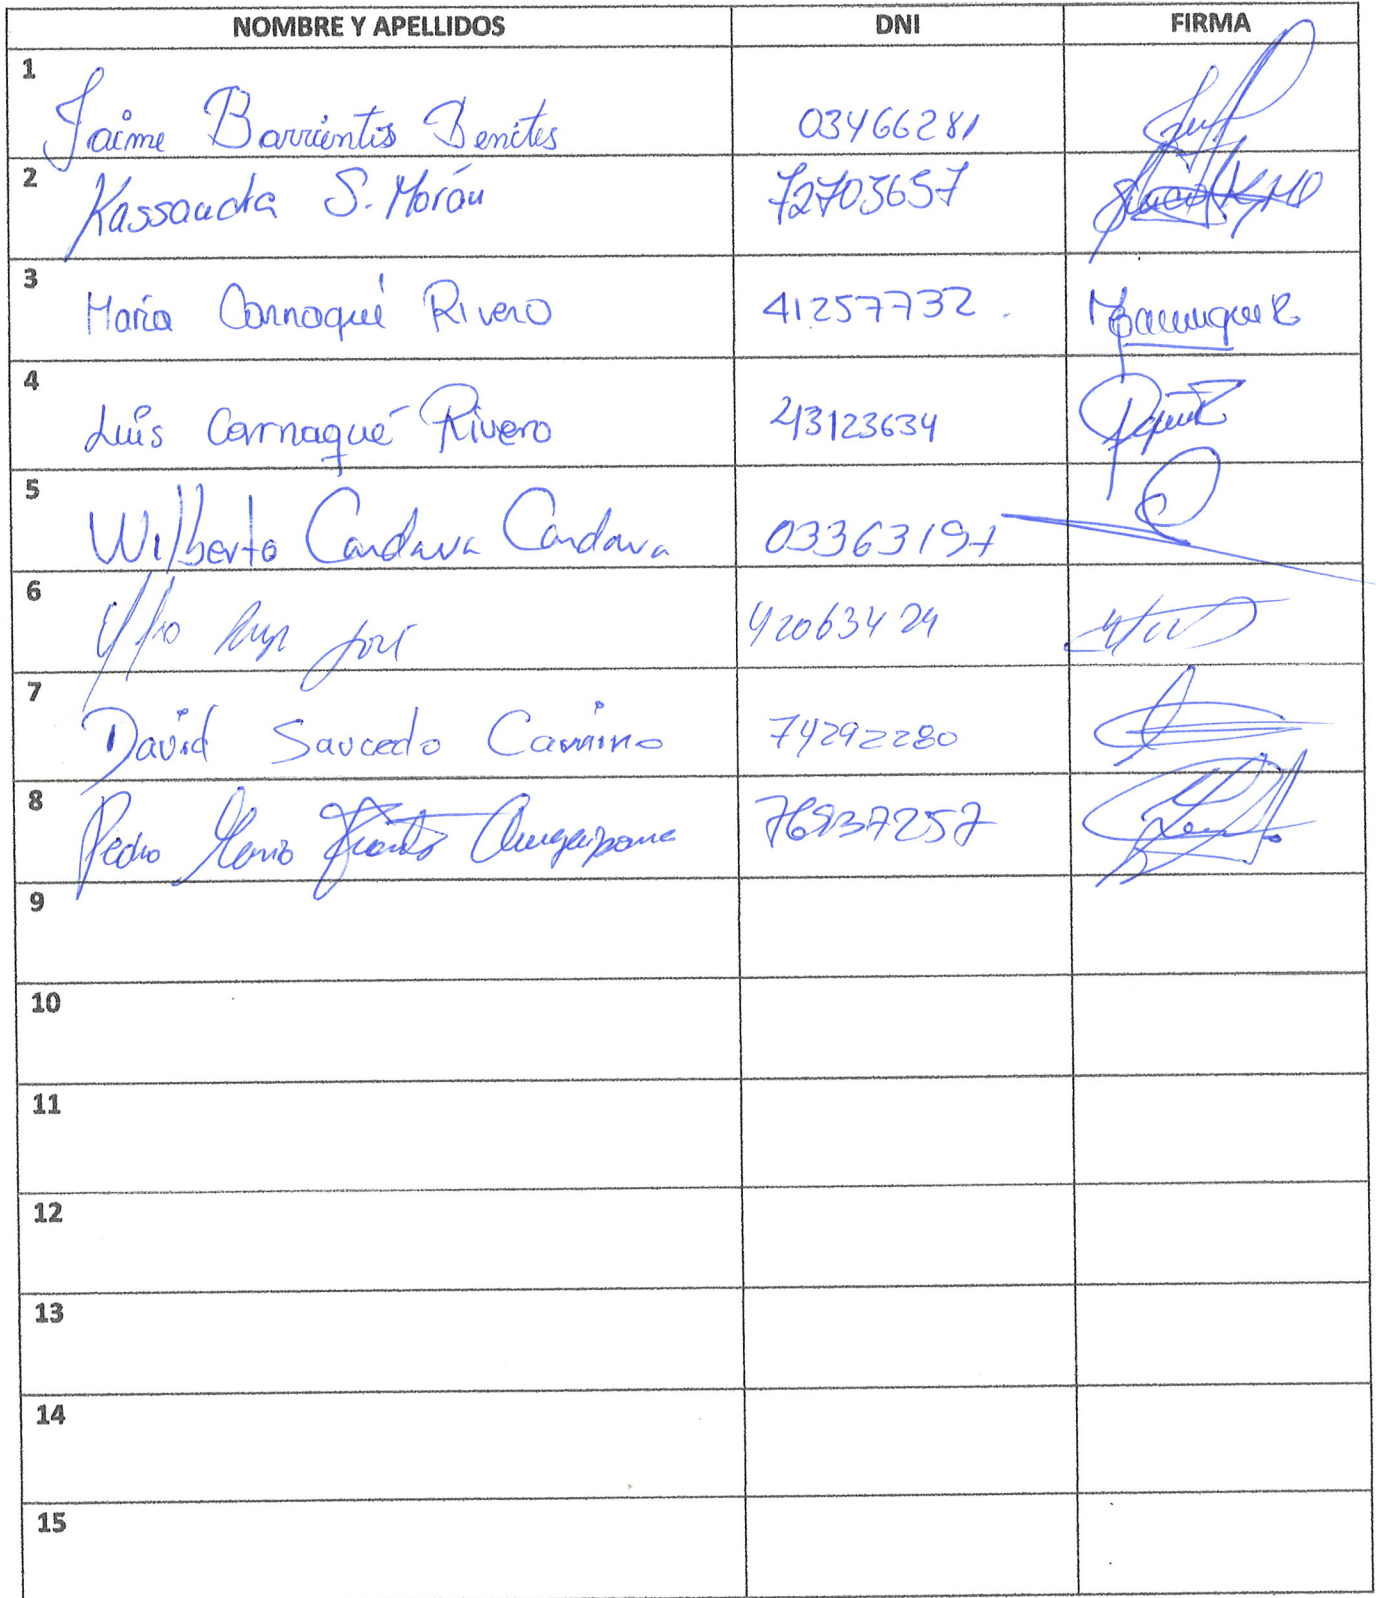 NOMBRE Y APELLIDOS DNI FIRMA
1 Jaime Barrientos Benites 03466281
2 Kassandra S. Morán 72703657
3 María Carnaqué Rivero 41257732
4 Luis Carnaqué Rivero 43123634
5 Wilberto Candava Candava 03363197
6 José 42063424
7 David Saucedo Camino 74292280
8 Pedro 76937257
9
10
11
12
13
14
15